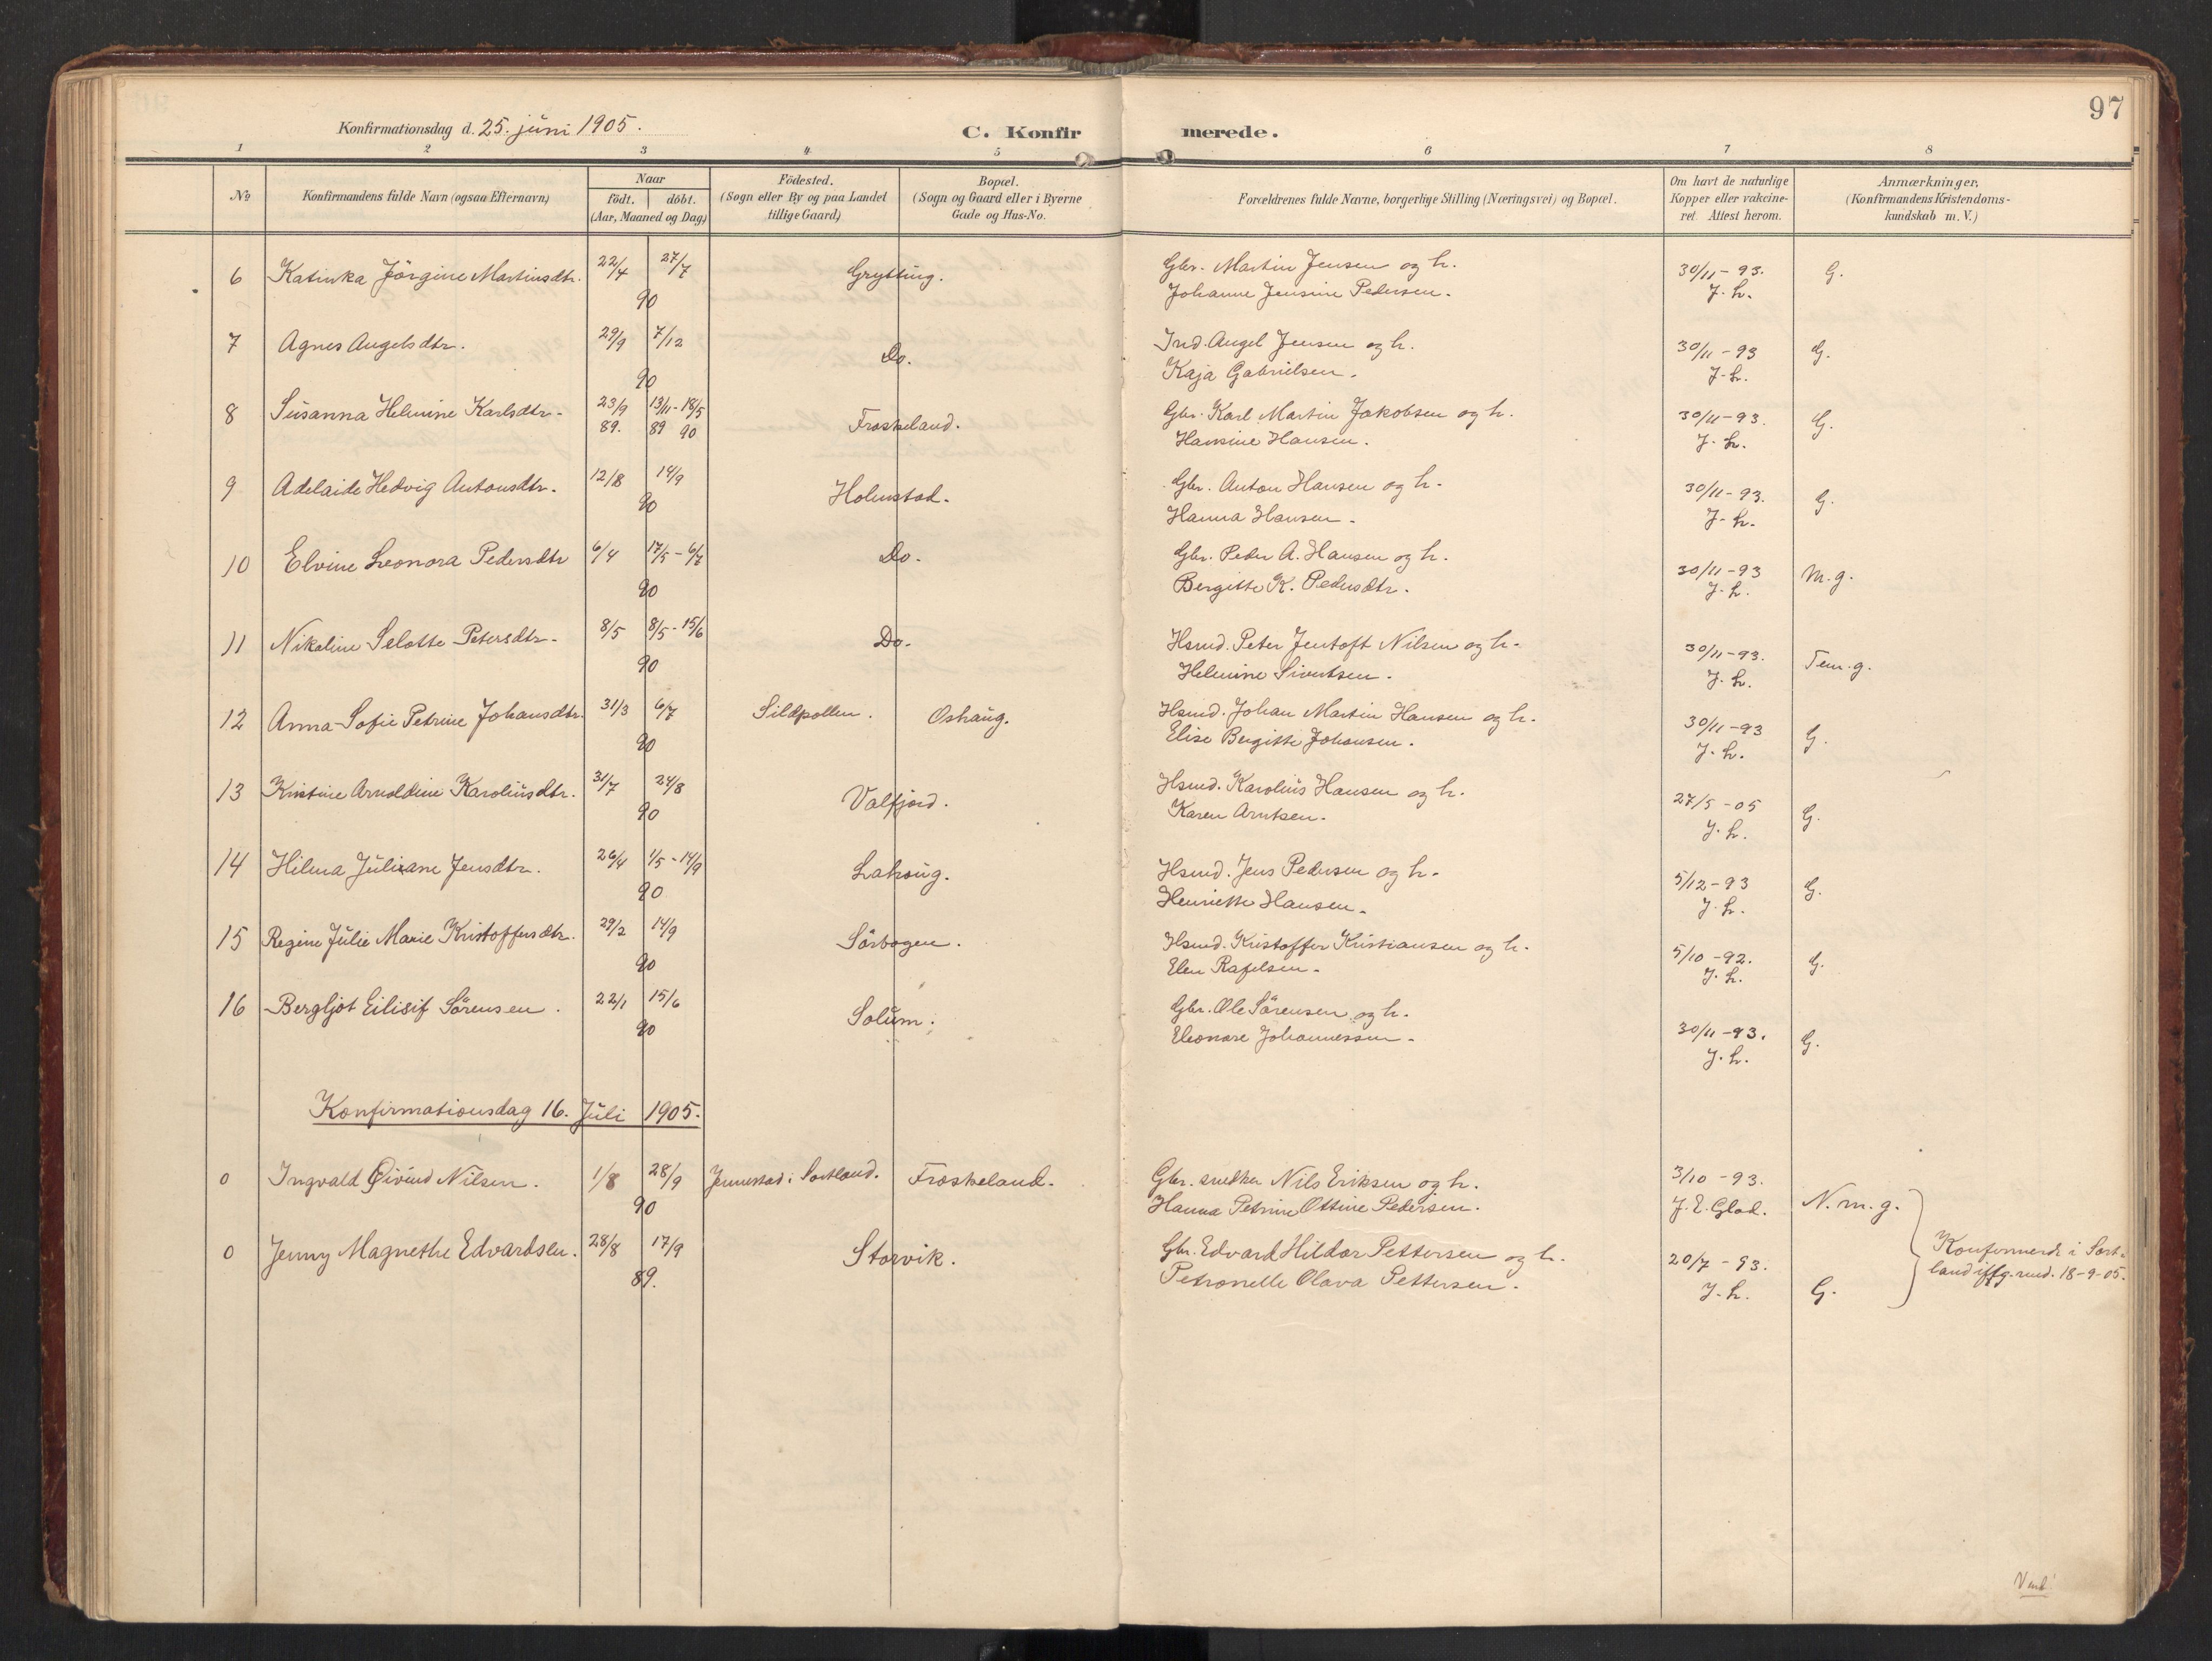 97
Konfirmationsdag d. 25. juni 1905.
C. Konfirmerede.
1 2 3 4 5 6 7 8
No
Konfirmandens fulde Navn (ogsaa Efternavn)
Naar
födt. döbt.
(Aar, Maaned og Dag)
Födested.
(Sogn eller By og paa Landet
tillige Gaard)
Bopæl.
(Sogn og Gaard eller i Byerne
Gade og Hus-No.
Forældrenes fulde Navne, borgerlige Stilling (Næringsvei) og Bopæl.
Om havt de naturlige
Kopper eller vakcine-
ret. Attest herom.
Anmærkninger,
(Konfirmandens Kristendoms-
kundskab m. V.)
6 Katinka Jörgine Martinsdtr. 22/4 27/7 Grytting. Gbr. Martin Jensen og h. 30/11-93. G.
90 Johanne Jensine Pedersen. J. L.
7 Agnes Angelsdtr. 29/9 7/12 Do. Ind. Angel Jensen og h. 30/11-93 G.
90 Kaja Gabrielsen. J. L.
8 Susanna Helmine Karlsdtr. 23/9 13/11-18/5 Froskeland. Gbr. Karl Martin Jakobsen og h. 30/11-93. G.
89. 89 90 Hansine Hansen. J. L.
9 Adelaide Hedvig Antonsdtr. 12/8 14/9 Holmstad. Gbr. Anton Hansen og h. 30/11-93. G.
90 Hanna Hansen. J. L.
10 Elvine Leonora Pedersdtr 6/4 17/5-6/7 Do. Gbr. Peder A. Hansen og h. 30/11-93 M.g.
90 Bergitte K. Pedersdtr. J. L.
11 Nikoline Selotte Petersdtr. 8/5 8/5-15/6 Do. Hsmd. Peter Jentoft Nilsen og h. 30/11-93. Tem. g.
90 Helmine Sivertsen. J. L.
12 Anna Sofie Petrine Johansdtr. 31/3 6/7 Sildpollen. Oshaug. Hsmd. Johan Martin Hansen og h. 30/11-93 G.
90 Elise Bergitte Johansen. J. L.
13 Kristine Arnoldine Karoliusdtr. 31/7 24/8 Valfjord. Hsmd. Karolius Hansen og h. 27/5-05 G.
90 Karen Arntsen. J. L.
14 Hilma Juliane Jensdtr. 26/4 1/5-14/9 Lahaug. Hsmd. Jens Pedersen og h. 5/12-93 G.
90 Henriette Hansen. J. L.
15 Regine Julie Marie Kristoffersdtr. 29/2 14/9 Sörbogen. Hsmd. Kristoffer Kristiansen og h. 5/10-92. G.
90 Elen Rafelsen. J. L.
16 Bergljot Eilisif Sörensen. 22/1 15/6 Solum. Gbr. Ole Sörensen og h. 30/11-93. G.
90 Eleonore Johannessen. J. L.
Konfirmationsdag 16. Juli 1905.
0 Ingvald Öivind Nilsen. 1/8 28/9 Jennestad i Sortland. Froskeland. Gbr. snedker Nils Eriksen og h. 3/10-93. N.m.g.
90 Hanna Petrine Ottine Pedersen. J. E. Glad.
0 Jenny Magnethe Edvardsen. 28/8 17/9 Storvik. Gbr. Edvard Hildor Pettersen og h. 20/7-93. G.
89. Petronelle Olava Pettersen. J. L.
Konfirmerede i Sort-
land iflg. md. 18-9-05.
Vend